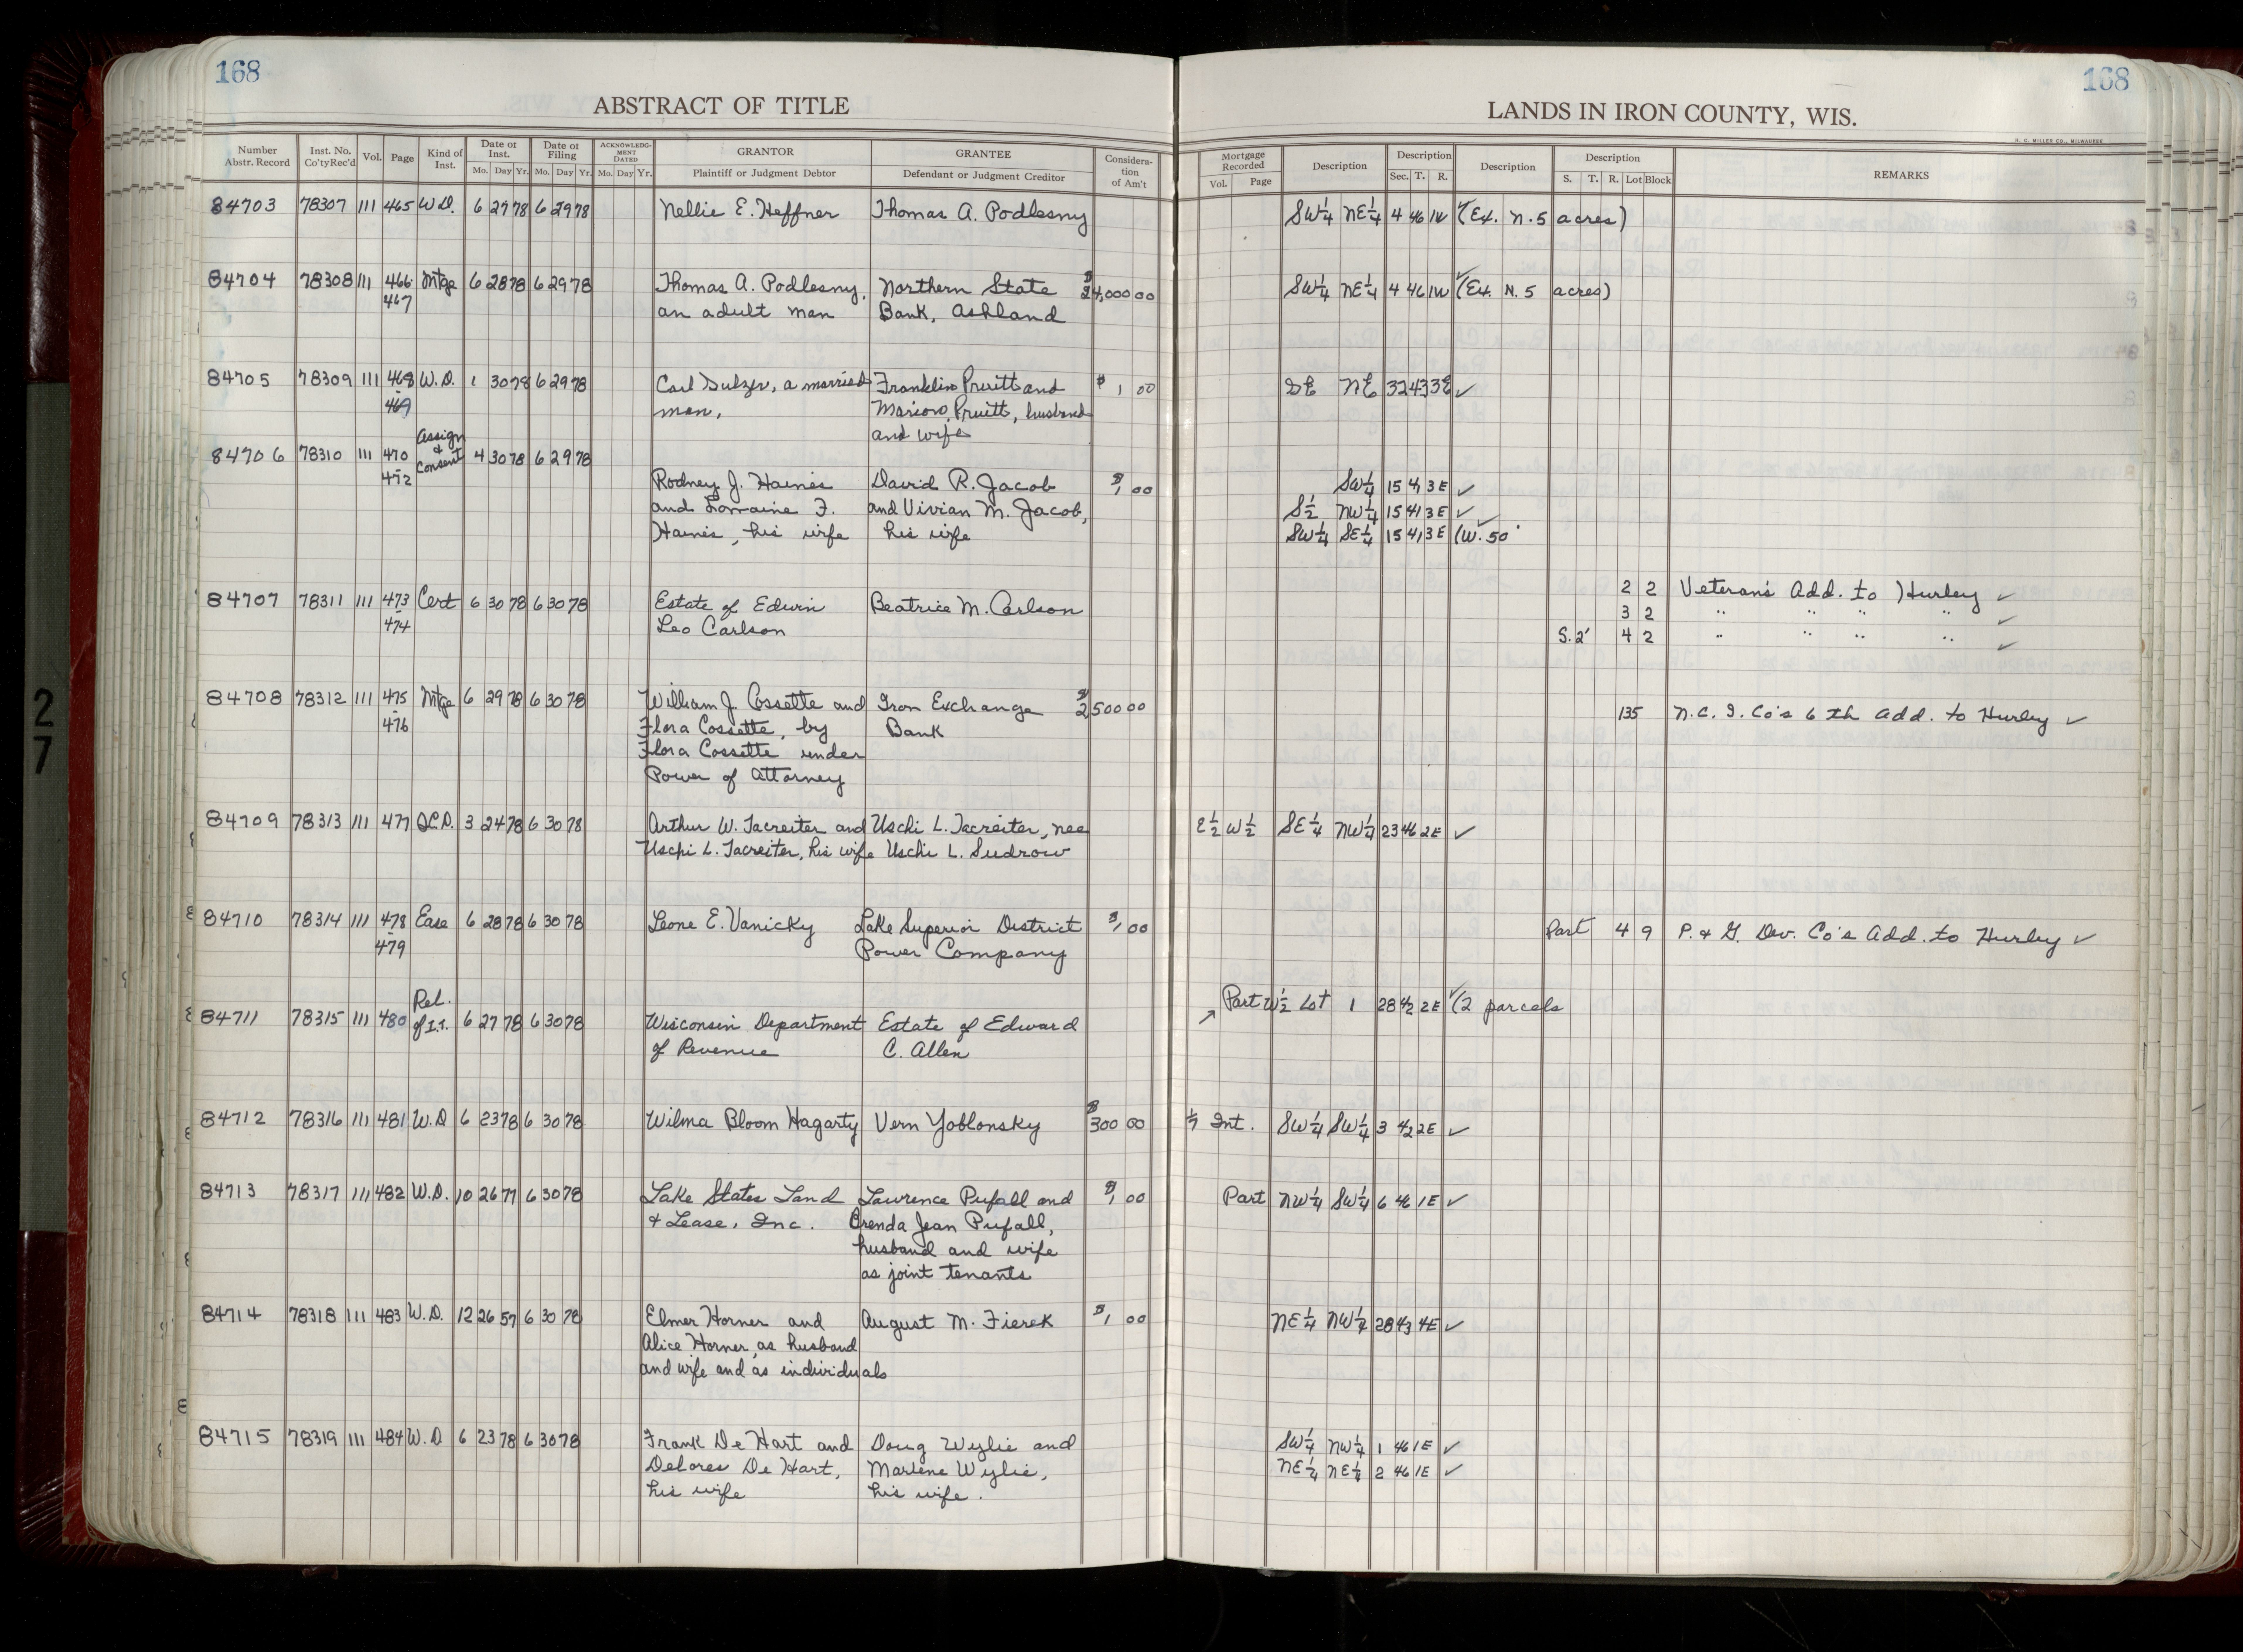 168
168
ABSTRACT OF TITLE
LANDS IN IRON COUNTY, WIS.
H. C. MILLER CO., MILWAUKEE
Number Abstr. Record Inst. No. Co'tyRec'd Vol. Page Kind of Inst. Date of Inst. Mo. Day Yr. Date of Filing Mo. Day Yr. ACKNOWLEDGMENT DATED Mo. Day Yr. GRANTOR Plaintiff or Judgment Debtor GRANTEE Defendant or Judgment Creditor Consideration of Am't
Mortgage Recorded Vol. Page Description Description Sec. T. R. Description Description S. T. R. Lot Block REMARKS
84703 78307 111 465 W.D. 6 29 78 6 29 78 Nellie E. Heffner Thomas A. Podlesny SW¼ NE¼ 4 46 1W ✓(Ex. N. 5 acres)
84704 78308 111 466- Mtge 6 28 78 6 29 78 Thomas A. Podlesny, Northern State $24,000 00 SW¼ NE¼ 4 46 1W ✓(Ex. N. 5 acres)
467 an adult man Bank, Ashland
84705 78309 111 468 W.D. 1 30 78 6 29 78 Carl Sulzer, a married Franklin Pruitt and $1 00 SE NE 32 43 3E ✓
469 man, Marion Pruitt, husband
and wife
84706 78310 111 470 Assign & Consent 4 30 78 6 29 78
- 472
Rodney J. Haines David R. Jacob $1 00 SW¼ 15 41 3E ✓
and Lorraine F. and Vivian M. Jacob, S½ NW¼ 15 41 3E ✓
Haines, his wife his wife SW¼ SE¼ 15 41 3E (W. 50'
84707 78311 111 473 Cert 6 30 78 6 30 78 Estate of Edwin Beatrice M. Carlson 2 2 Veteran's Add. to Hurley ✓
- 474 Leo Carlson 3 2 " " " " ✓
S. 2' 4 2 " " " " ✓
84708 78312 111 475 Mtge 6 29 78 6 30 78 William J. Cossette and Iron Exchange $2500 00 135 N.C.I. Co's 6th Add. to Hurley ✓
- 476 Flora Cossette, by Bank
Flora Cossette under
Power of Attorney
84709 78313 111 477 Q.C.D. 3 24 78 6 30 78 Arthur W. Tacreiter and Uschi L. Tacreiter, nee E½ W½ SE¼ NW¼ 23 46 2E ✓
Uschi L. Tacreiter, his wife Uschi L. Sudrow
84710 78314 111 478 Ease 6 28 78 6 30 78 Leone E. Vanicky Lake Superior District $1 00 Part 4 9 P. & G. Dev. Co's Add. to Hurley ✓
- 479 Power Company
84711 78315 111 480 Rel. of I.T. 6 27 78 6 30 78 Wisconsin Department Estate of Edward Part W½ Lot 1 28 42 2E ✓(2 parcels
of Revenue C. Allen
84712 78316 111 481 W.D 6 23 78 6 30 78 Wilma Bloom Hagarty Vern Yoblonsky $300 00 Int. SW¼ SW¼ 3 42 2E ✓
84713 78317 111 482 W.D. 10 26 77 6 30 78 Lake States Land Lawrence Pufall and $1 00 Part NW¼ SW¼ 6 46 1E ✓
& Lease, Inc. Brenda Jean Pufall,
husband and wife
as joint tenants
84714 78318 111 483 W.D. 12 26 57 6 30 78 Elmer Horner and August M. Fierek $1 00 NE¼ NW¼ 28 43 4E ✓
Alice Horner, as husband
and wife and as individuals
84715 78319 111 484 W.D 6 23 78 6 30 78 Frank De Hart and Doug Wylie and SW¼ NW¼ 1 46 1E ✓
Delores De Hart, Marlene Wylie, NE¼ NE¼ 2 46 1E ✓
his wife his wife.
27